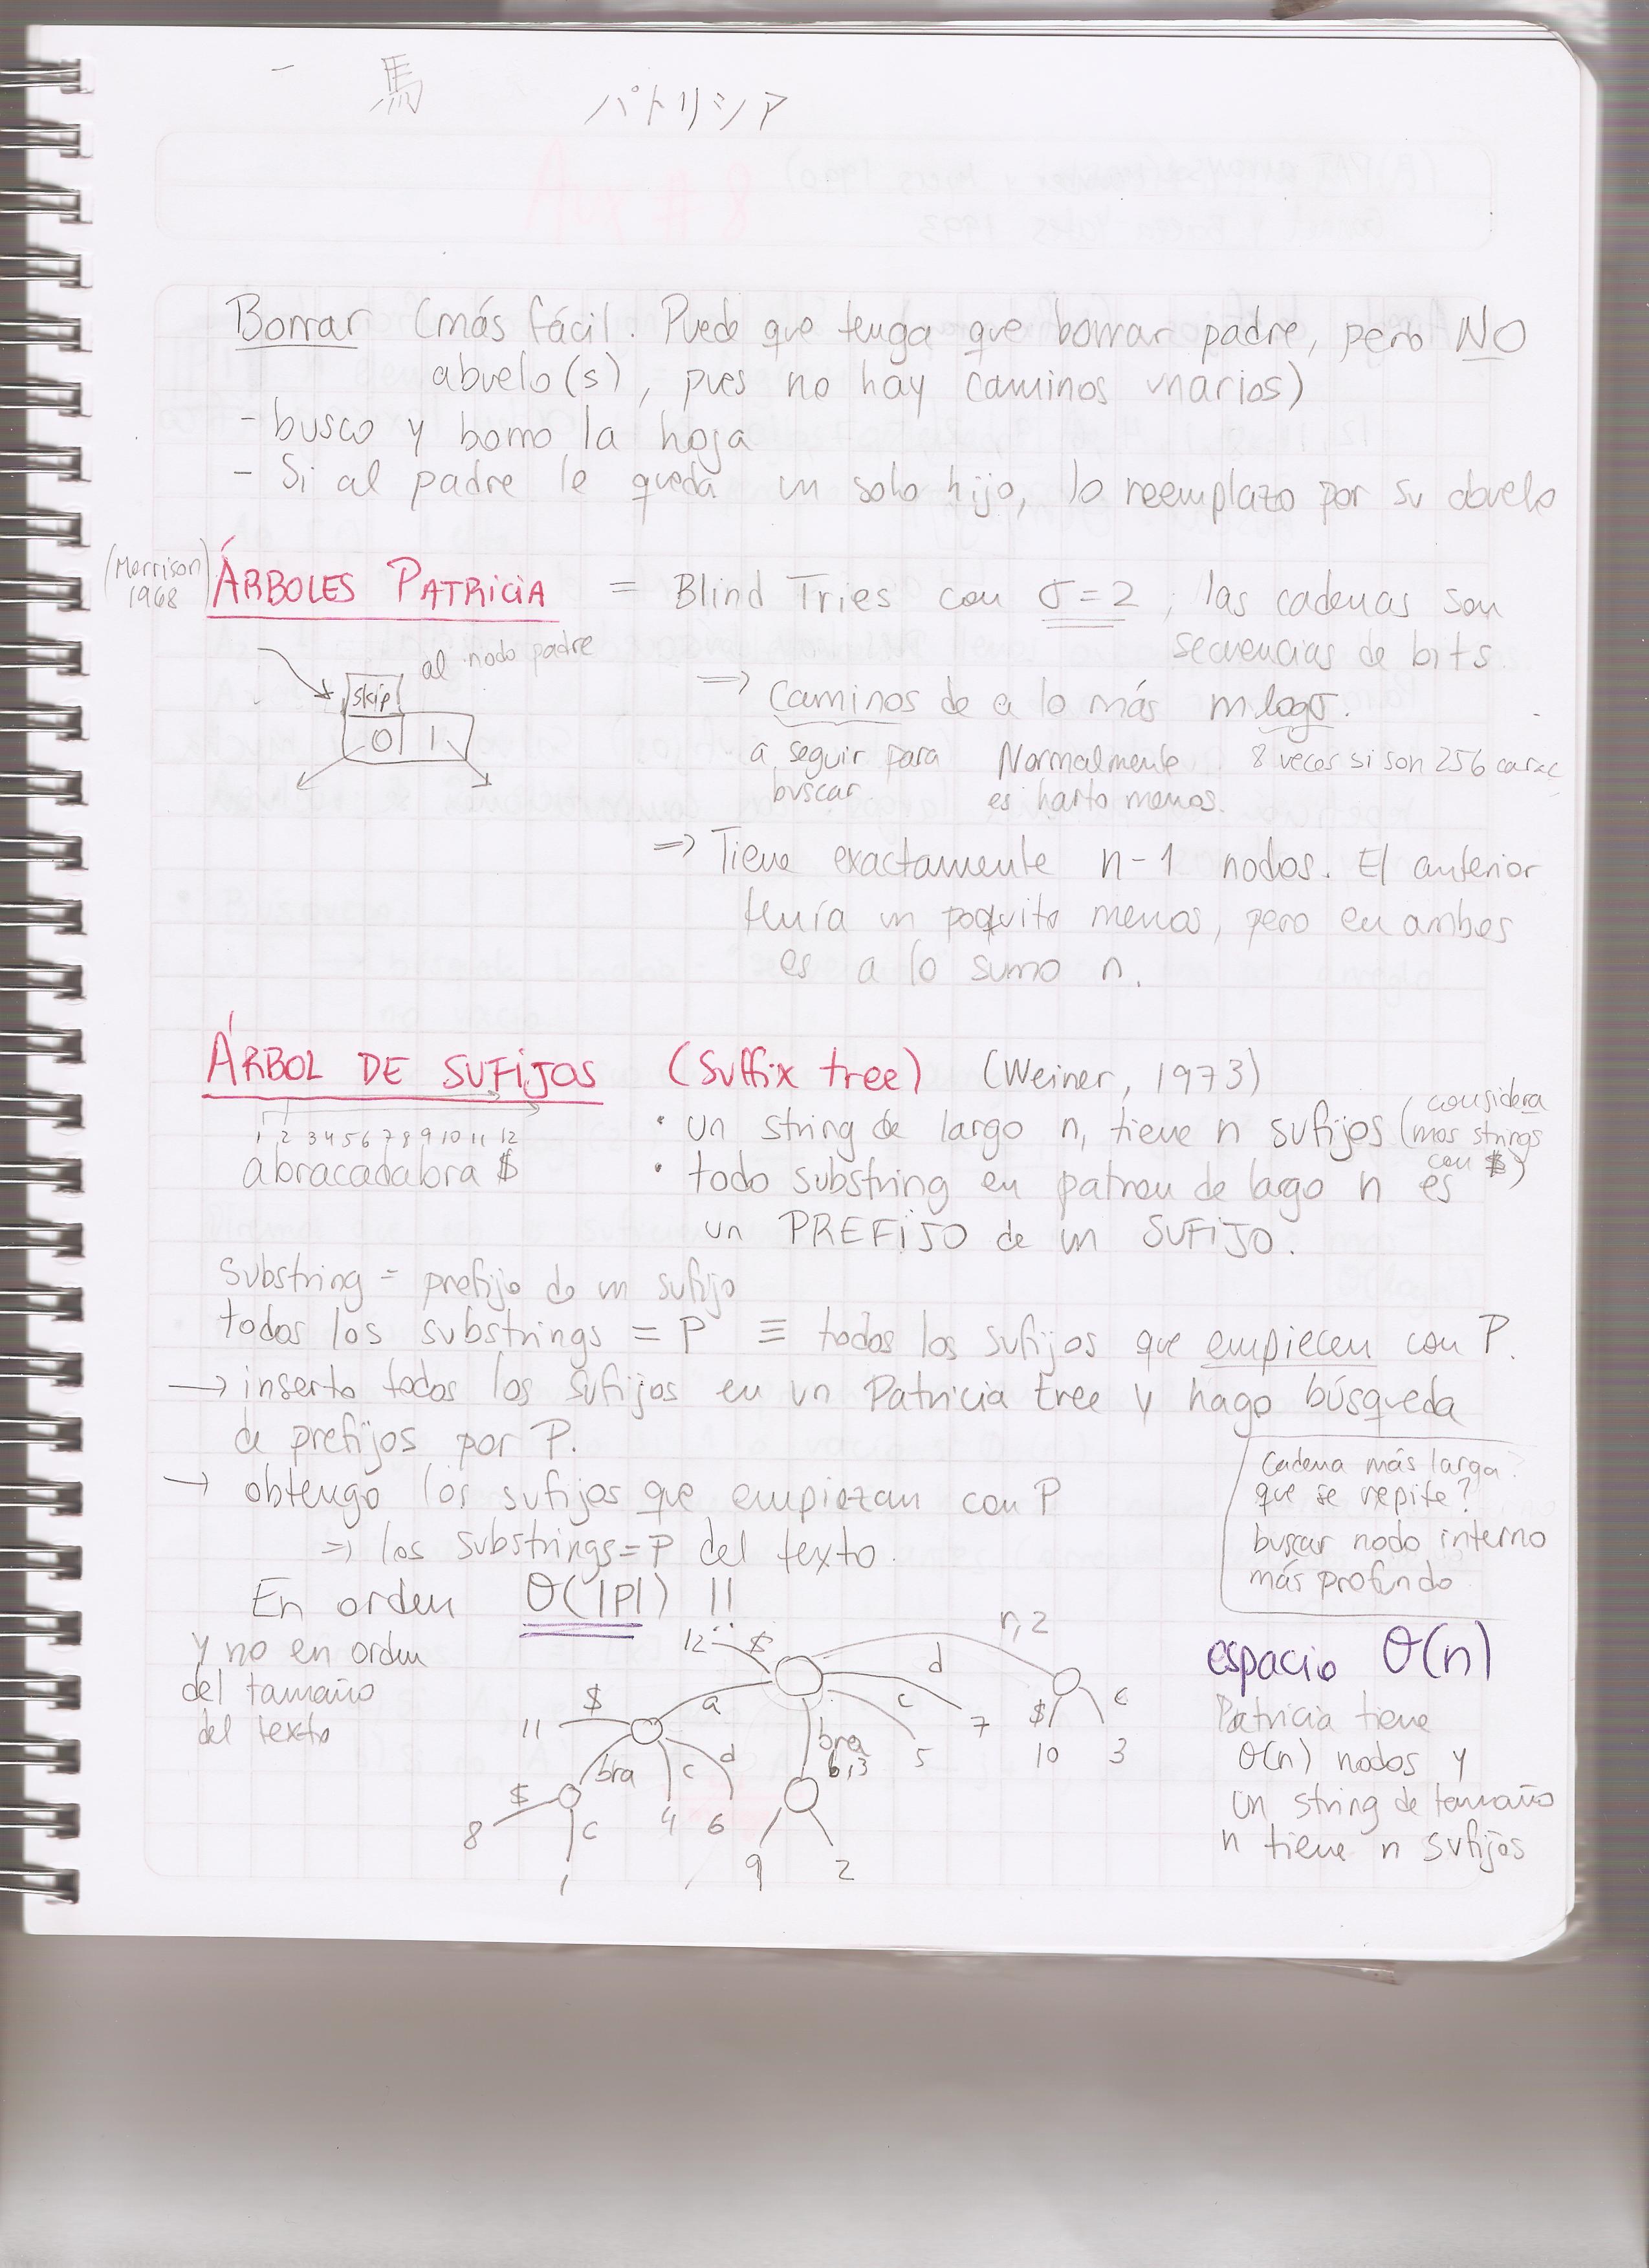 馬 パトリシア
Borrar (más fácil. Puede que tenga que borrar padre, pero NO
abuelo(s), pues no hay caminos unarios)
- busco y borro la hoja
- Si al padre le queda un solo hijo, lo reemplazo por su abuelo
(Morrison 1968) ÁRBOLES PATRICIA = Blind Tries con σ=2, las cadenas son
secuencias de bits
al nodo padre
skip
0 1
=> Caminos de a lo más m logσ.
a seguir para buscar.
Normalmente es harto menos.
8 veces si son 256 carac
=> Tiene exactamente n-1 nodos. El anterior
tenía un poquito menos, pero en ambos
es a lo sumo n.
ÁRBOL DE SUFIJOS (Suffix tree) (Weiner, 1973)
1 2 3 4 5 6 7 8 9 10 11 12
abracadabra $
• un string de largo n, tiene n sufijos (considera
mos strings
con $)
• todo substring en patron de largo n es
un PREFIJO de un SUFIJO.
Substring = prefijo de un sufijo
todos los substrings = P ≡ todos los sufijos que empiecen con P.
→ inserto todos los sufijos en un Patricia tree y hago búsqueda
de prefijos por P.
→ obtengo los sufijos que empiezan con P
=> los substrings=P del texto.
Cadena más larga
que se repite?
buscar nodo interno
más profundo
En orden O(|P|) !!
y no en orden
del tamaño
del texto
12 $ r,2
a d c
$ 11
bra c d
bra 6,3
5 7
$ c
10 3
$ 8 c 1
4 6
9 2
espacio O(n)
Patricia tiene
O(n) nodos y
un string de tamaño
n tiene n sufijos